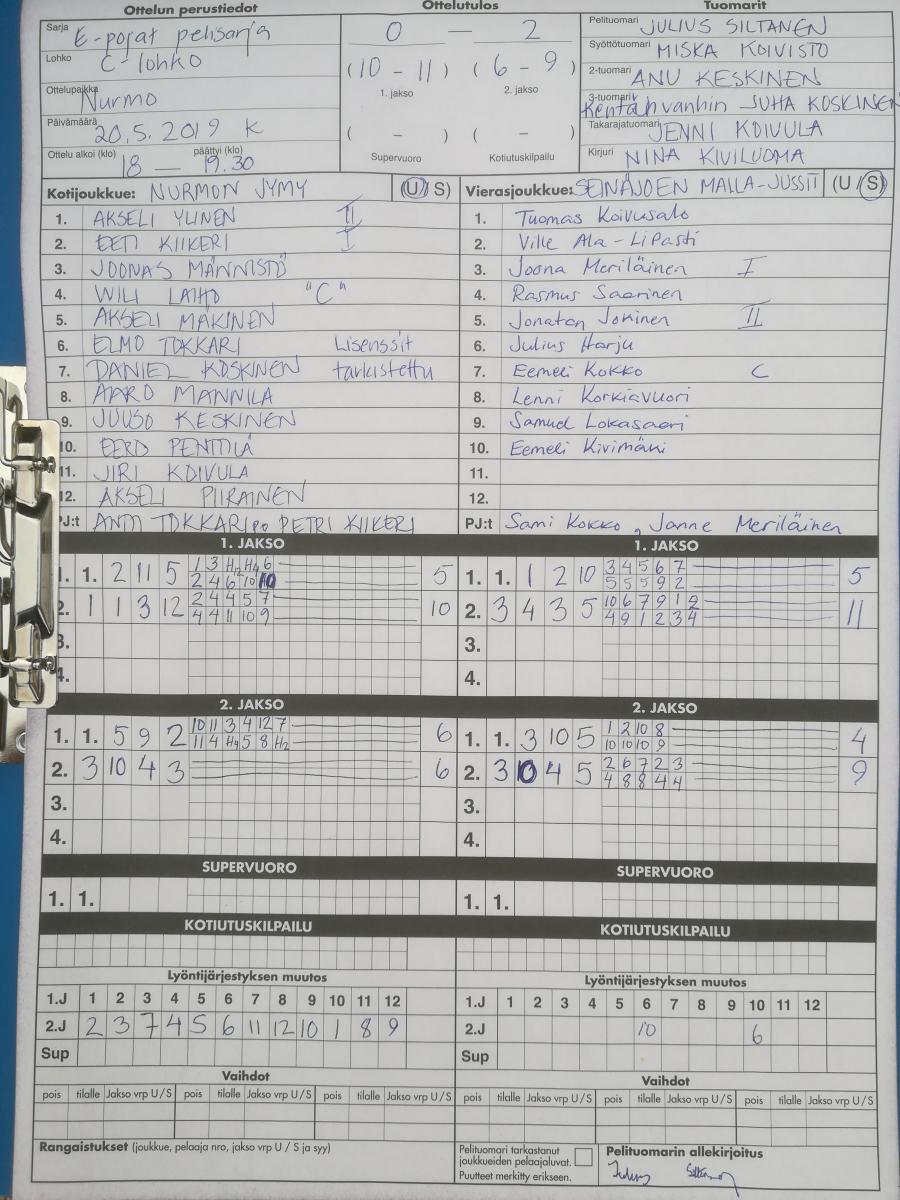 Ottelun perustiedot
Ottelutulos
Tuomarit
Sarja E-pojat pelisarja
Lohko C-lohko
Ottelupaikka Nurmo
Päivämäärä 20.5.2019 K
Ottelu alkoi (klo) 18 — päättyi (klo) 19.30
0 — 2
(10 - 11) (6 - 9)
1. jakso 2. jakso
( - ) ( - )
Supervuoro Kotiutuskilpailu
Pelituomari JULIUS SILTANEN
Syöttötuomari MISKA KOIVISTO
2-tuomari ANU KESKINEN
3-tuomari Kentän vanhin JUHA KOSKINEN
Takarajatuomari JENNI KOIVULA
Kirjuri NINA KIVILUOMA
Kotijoukkue: NURMON JYMY (U/S)
1. AKSELI YLINEN II
2. EETI KIIKERI I
3. JOONAS MÄNNISTÖ
4. WILI LAIHO "C"
5. AKSELI MÄKINEN
6. ELMO TOKKARI Lisenssit
7. DANIEL KOSKINEN tarkistettu
8. AARO MANNILA
9. JUUSO KESKINEN
10. EERO PENTTILÄ
11. JIRI KOIVULA
12. AKSELI PIIRAINEN
PJ:t ANTTI TOKKARI PETRI KIIKERI
Vierasjoukkue: SEINÄJOEN MAILA-JUSSIT (U/S)
1. Tuomas Koivusalo
2. Ville Ala-Lipasti
3. Joona Meriläinen I
4. Rasmus Saarinen
5. Jonatan Jokinen II
6. Julius Harju
7. Eemeli Kokko C
8. Lenni Korkiavuori
9. Samuel Lokasaari
10. Eemeli Kivimäki
11.
12.
PJ:t Sami Kokko, Janne Meriläinen
1. JAKSO
1. 1. 2 11 5 1 3 H2 H4 6 5
2 4 6 10 10
2. 1 1 3 12 2 4 4 5 7 10
4 4 11 10 9
3.
4.
1. JAKSO
1. 1. 1 2 10 3 4 5 6 7 5
5 5 5 9 2
2. 3 4 3 5 10 6 7 9 1 2 11
4 9 1 2 3 4
3.
4.
2. JAKSO
1. 1. 5 9 2 10 11 3 4 12 7 6
11 4 H4 5 8 H2
2. 3 10 4 3 6
3.
4.
2. JAKSO
1. 1. 3 10 5 1 2 10 8 4
10 10 10 9
2. 3 10 4 5 2 6 7 2 3 9
4 8 8 4 4
3.
4.
SUPERVUORO
1. 1.
SUPERVUORO
1. 1.
KOTIUTUSKILPAILU
KOTIUTUSKILPAILU
Lyöntijärjestyksen muutos
1.J 1 2 3 4 5 6 7 8 9 10 11 12
2.J 2 3 7 4 5 6 11 12 10 1 8 9
Sup
Lyöntijärjestyksen muutos
1.J 1 2 3 4 5 6 7 8 9 10 11 12
2.J 10 6
Sup
Vaihdot
pois tilalle Jakso vrp U/S pois tilalle Jakso vrp U/S pois tilalle Jakso vrp U/S
Vaihdot
pois tilalle Jakso vrp U/S pois tilalle Jakso vrp U/S pois tilalle Jakso vrp U/S
Rangaistukset (joukkue, pelaaja nro, jakso vrp U / S ja syy)
Pelituomari tarkastanut
joukkueiden pelaajaluvat.
Puutteet merkitty erikseen.
Pelituomarin allekirjoitus